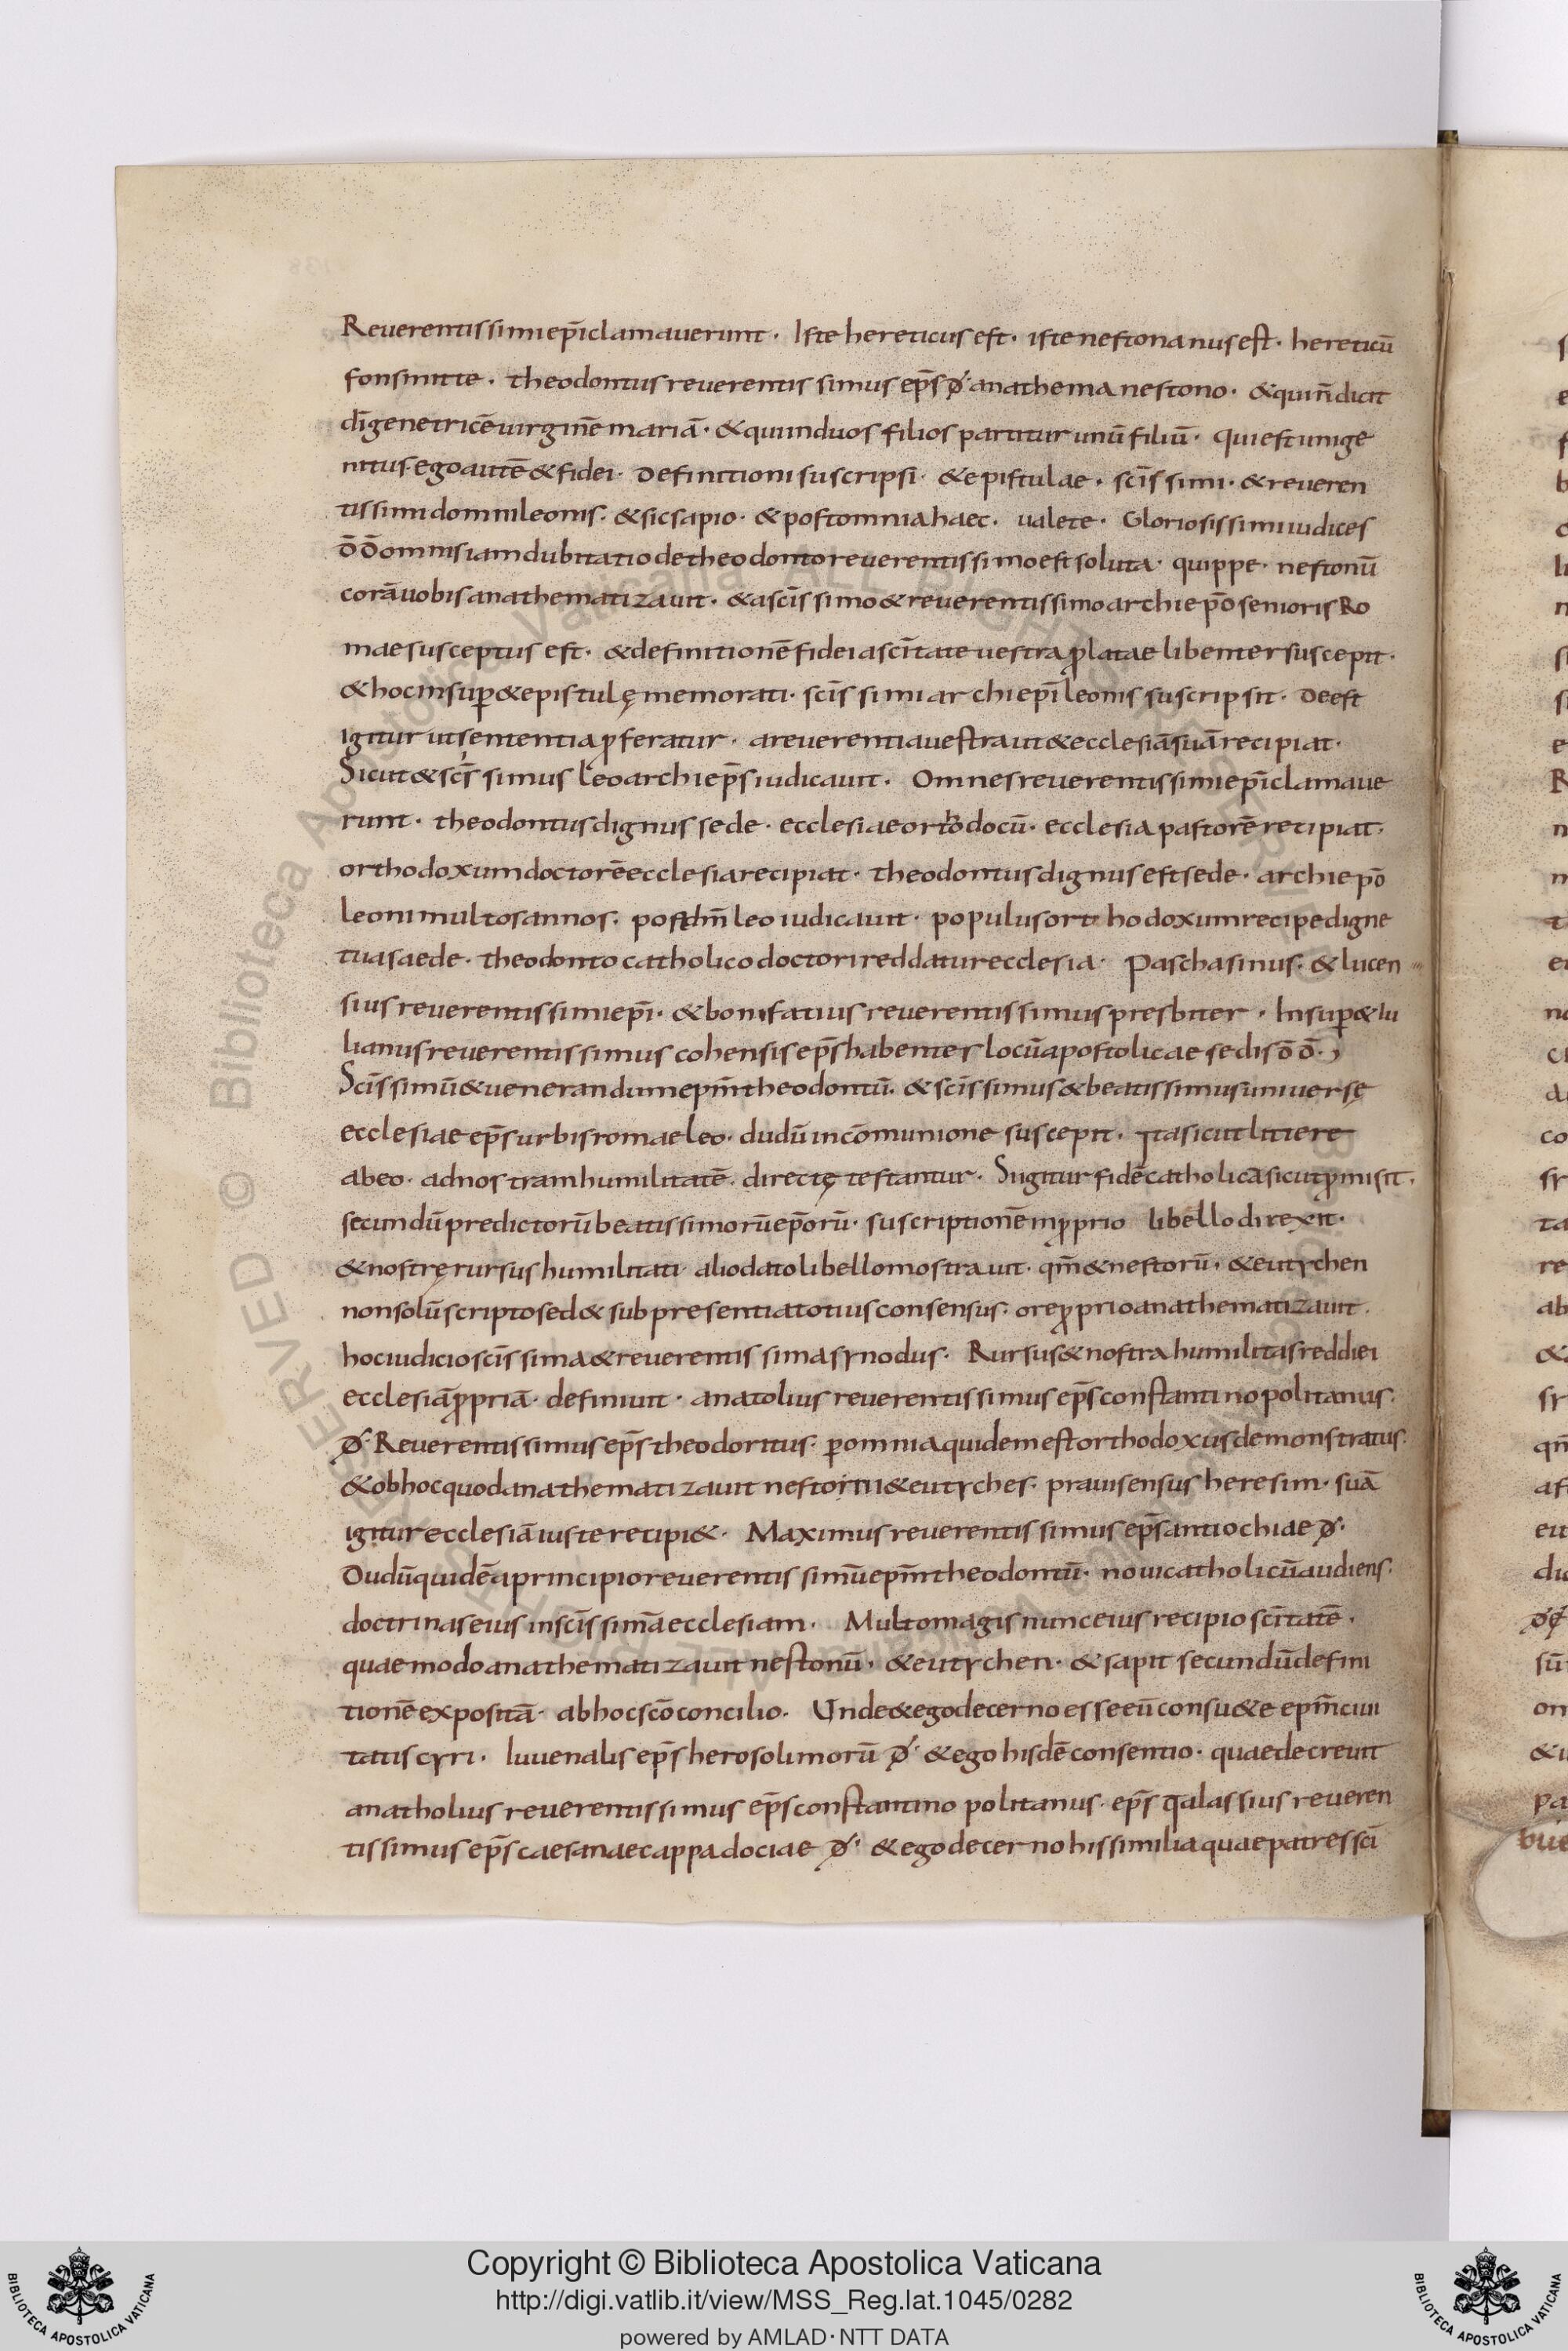 Reuerentissimi ep̄i clamauerunt · Iste hereticus est · iste nestorianus est · hereticū
fonsmitte · theodoritus reuerentissimus ep̄s ꝺ̸ · anathema nestorio · & qui n̄ dicit
dī genetricē uirginē mariā · & qui in duos filios partitur unū filiū · qui est unige
nitus ego autē & fidei · definitioni suscripsi · & epistulae · sc̄issimi · & reueren
tissimi domni leonis · & sic sapio · & post omnia haec · ualete · Gloriosissimi iudices
ō ō omnis iam dubitatio de theodorito reuerentissimo est soluta · quippe · nestoriū
corā uobis anathematizauit · & a sc̄issimo & reuerentissimo archiep̄o senioris Ro
mae susceptus est · & definitionē fidei a sc̄itate uestra ꝓlatae libenter suscepit ·
& hoc insuꝑ & epistulę memorati · sc̄issimi archiep̄i leonis suscripsit · deest
igitur ut sententia ꝓferatur · a reuerentia uestra ut & ecclesiā suā recipiat ·
Sicut & sc̄issimus Leo archiep̄s iudicauit · Omnes reuerentissimi ep̄i clamaue
runt · theodoritus dignus sede · ecclesiae ortodocū · ecclesia pastorē recipiat ·
orthodoxum doctorē ecclesia recipiat · theodoritus dignus est sede · archiep̄o
leoni multos annos · post dm̄ leo iudicauit · populus orthodoxum recipe digne
tua saede · theodorito catholico doctori reddatur ecclesia · Paschasinus · & lucen
sius reuerentissimi ep̄i · & bonifatius reuerentissimus presbiter · Insuꝑ & iu
lianus reuerentissimus cohensis ep̄s habentes locū apostolicae sedis ō ō ·
Sc̄issimū & uenerandum epm̄ theodoritū · & sc̄issimus & beatissimus uniuersę
ecclesiae ep̄s urbis romae leo · dudū in cōmunione suscepit · ita sicut littere
ab eo · ad nostram humilitatē · directę testantur · Si igitur fidē catholicā sicut ꝓmisit ·
secundū predictorū beatissimorū ep̄orū · suscriptionē in ꝓprio libello direxit ·
& nostrę rursus humilitati alio dato libello mostrauit · qm̄ & nestoriū · & eutychen
non solū scripto sed & sub presentia totius consensus · ore ꝓprio anathematizauit ·
hoc iudicio sc̄issima & reuerentissima synodus · Rursus & nostra humilitas reddi ei
ecclesiā ꝓpriā · definiuit · anatolius reuerentissimus ep̄s constantinopolitanus ·
ꝺ̸ · Reuerentissimus ep̄s theodoritus · ꝑ omnia quidem est orthodoxus demonstratus ·
& ob hoc quod anathematizauit nestorii & eutyches · praui sensus heresim · suā
igitur ecclesiā iuste recipi& · Maximus reuerentissimus ep̄s antiochiae ꝺ̸ ·
Dudū quidē a principio reuerentissimū epm̄ theodoritū · noui catholicū audiens ·
doctrinas eius in sc̄issimā ecclesiam · Multo magis nunc eius recipio sc̄itatē ·
quae modo anathematizauit nestoriū · & eutychen · & sapit secundū defini
tionē expositā · ab hoc sc̄o concilio · Unde & ego decerno esse eū consu&e epm̄ ciui
tatis cyri · Iuuenalis ep̄s herosolimorū ꝺ̸ · & ego hisdē consentio · quae decreuit
anatholius reuerentissimus ep̄s constantinopolitanus · ep̄s qalassius reueren
tissimus ep̄s caesariae cappadociae ꝺ̸ · & ego decerno his similia quae patres sc̄i
Copyright © Biblioteca Apostolica Vaticana
http://digi.vatlib.it/view/MSS_Reg.lat.1045/0282
powered by AMLAD·NTT DATA